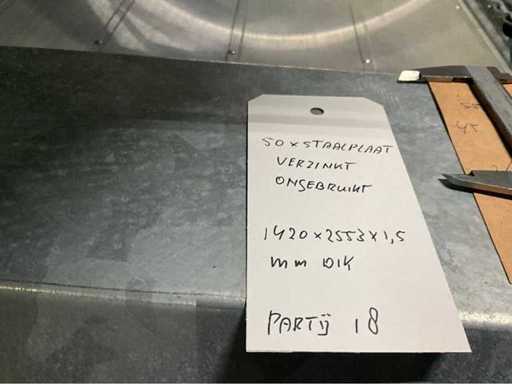 50 x STAALPLAAT
VERZINKT
ONGEBRUIKT
1420 x 2553 x 1,5
mm DIK
PARTIJ 18
45